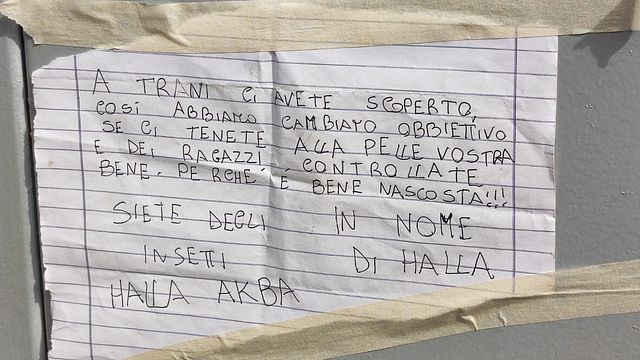 A TRANI CI AVETE SCOPERTO,
COSÌ ABBIAMO CAMBIATO OBBIETTIVO
SE CI TENETE ALLA PELLE VOSTRA
E DEI RAGAZZI CONTROLLATE
BENE. PERCHE' È BENE NASCOSTA!!!
SIETE DEGLI IN NOME
INSETTI DI HALLA
HALLA AKBA